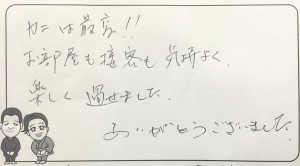 カニは最高!!
お部屋も接客も気持よく
楽しく過せました。
ありがとうございました。